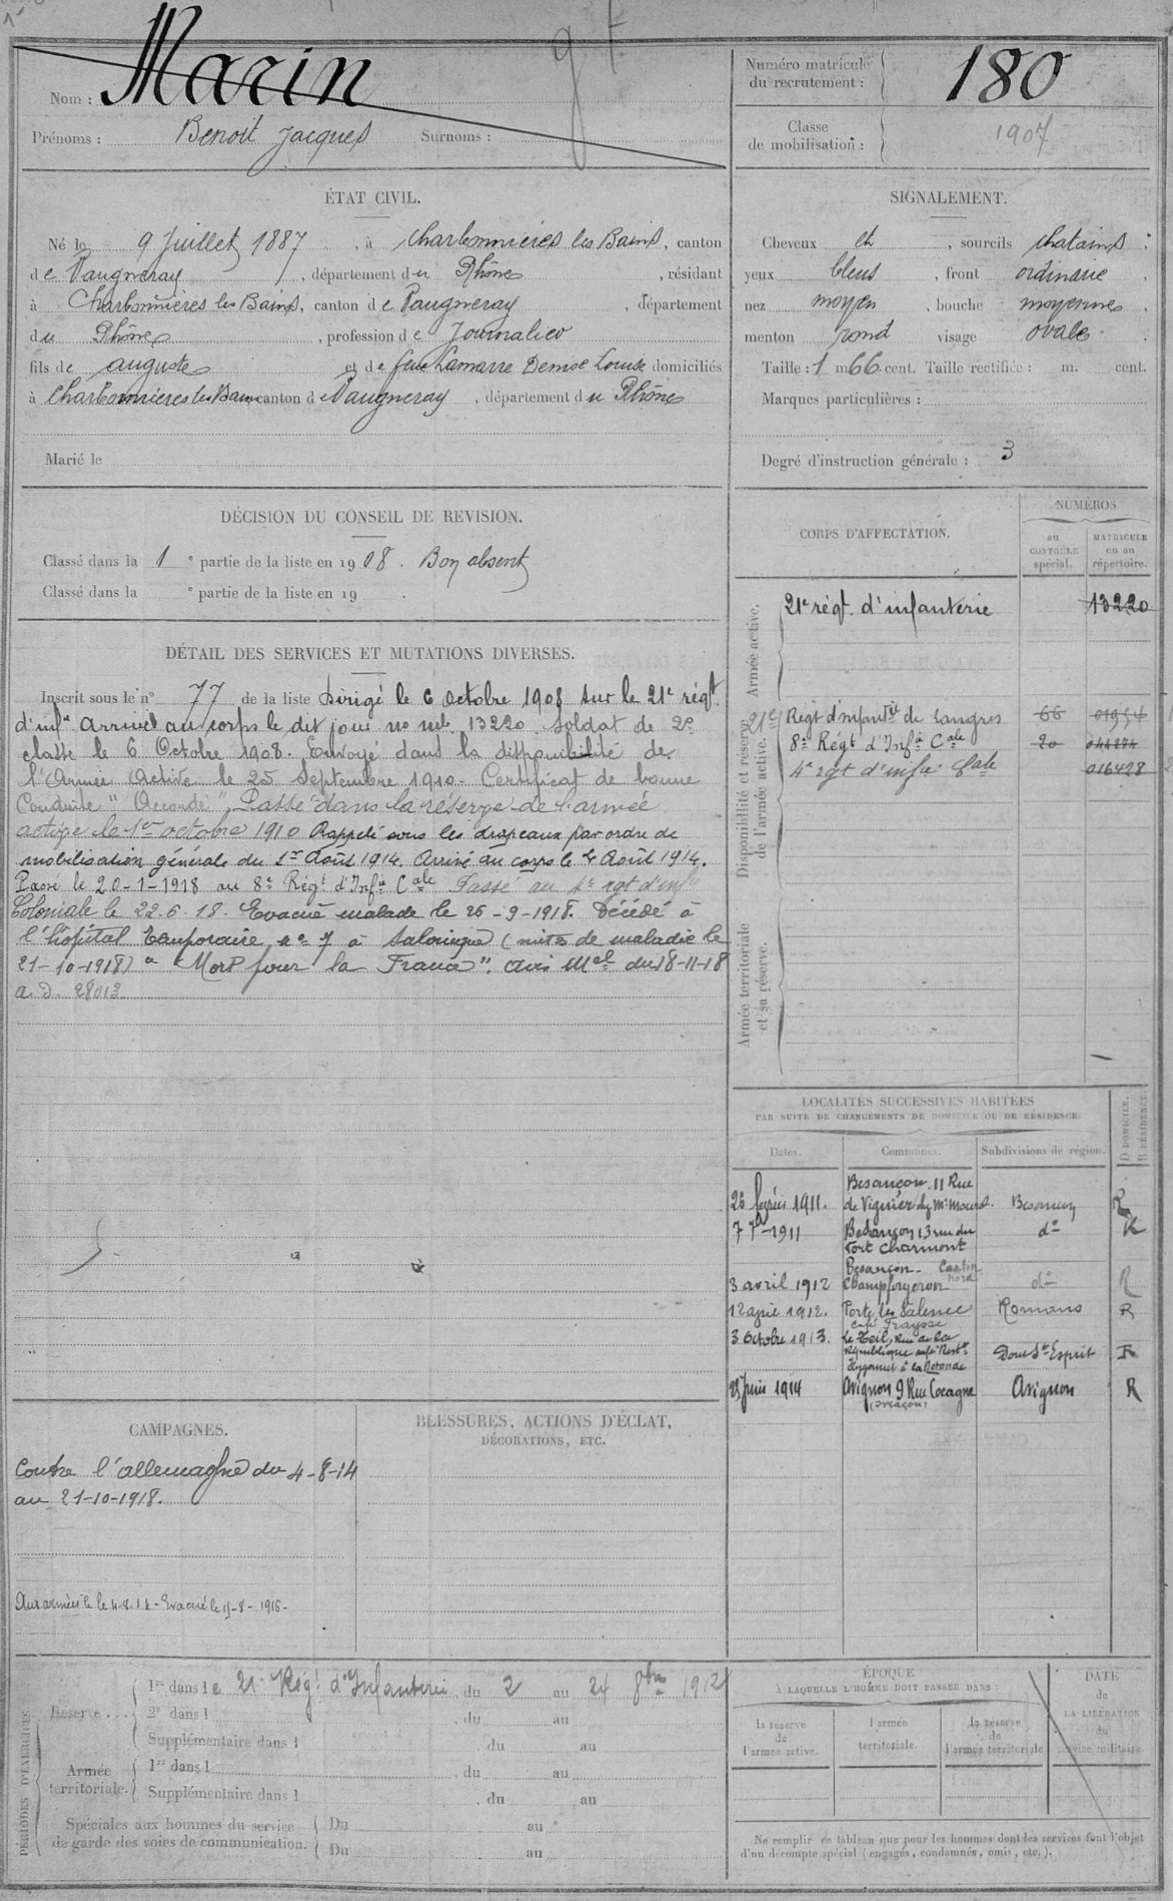 Nom : Marin
Prénoms : Benoit Jacques Surnoms :
Numéro matricule du recrutement : 180
Classe de mobilisation : 1907
ÉTAT CIVIL.
Né le 9 Juillet 1887, à Charbonnières les Bains, canton
de Vaugneray, département du Rhône, résidant
à Charbonnières les Bains, canton de Vaugneray, département
du Rhône, profession de Journalier
fils de Auguste et de feue Lamarre Denise Louise domiciliés
à Charbonnières les Bains canton de Vaugneray, département du Rhône
Marié le
SIGNALEMENT.
Cheveux et, sourcils chatains ;
yeux bleus, front ordinaire
nez moyen, bouche moyenne
menton rond visage ovale.
Taille : 1 m 66 cent. Taille rectifiée : m. cent.
Marques particulières :
Degré d'instruction générale : 3
DÉCISION DU CONSEIL DE REVISION.
Classé dans la 1 e partie de la liste en 1908. Bon absent
Classé dans la e partie de la liste en 19 .
DÉTAIL DES SERVICES ET MUTATIONS DIVERSES.
Inscrit sous le n° 77 de la liste Dirigé le 6 Octobre 1908 sur le 21e régt
d'infie Arrivé au corps le dit jour no mle 13220 soldat de 2e
classe le 6 Octobre 1908. Envoyé dans la disponibilité de
l'Armée Active le 25 Septembre 1910. Certificat de bonne
Conduite "Accordé". Passé dans la réserve de l'armée
active le 1er octobre 1910 Rappelé sous les drapeaux par ordre de
mobilisation générale du 1er Août 1914. Arrivé au corps le 4 Août 1914.
Passé le 20-1-1918 au 8e Régt d'Infie Cale Passé au 4e rgt d'infie
Coloniale le 22.6.18. Evacué malade le 26-9-1918. Décédé à
l'hôpital temporaire no 7 à Salonique (suites de maladie le
21-10-1918) "Mort pour la France". Avis Mel du 18-11-18
a. D. 28013
CORPS D'AFFECTATION.
NUMÉROS
au CONTRÔLE spécial.
MATRICULE ou au répertoire.
Armée active.
21e régt. d'infanterie 13220
Disponibilité et réserve de l'armée active.
21e Régt d'Infantie de Langres 66 01954
8e Régt d'Infie Cale 20
4e rgt d'infie Cale 016428
Armée territoriale et sa réserve.
LOCALITÉS SUCCESSIVES HABITÉES
PAR SUITE DE CHANGEMENTS DE DOMICILE OU DE RÉSIDENCE.
Dates. Communes. Subdivisions de région. D DOMICILE. R RÉSIDENCE.
26 février 1911. Besançon. 11 Rue de Vignier Besançon R
7 7-1911 Besançon 13 rue du Fort Charmont do R
3 avril 1912 Besançon - Canton Nord Champforgeron do R
12 1912. Porte les Valence Café Fraysse Romans R
3 Octobre 1913. Le Teil, Rue de la République à la Rotonde Pont St Esprit R
Juin 1914 Avignon 9 Rue Cocagne (maçon) Avignon R
CAMPAGNES.
Contre l'allemagne du 4-8-14
au 21-10-1918.
Aux armées le 4-8-14 - Evacué le -8-1915-
BLESSURES, ACTIONS D'ÉCLAT,
DÉCORATIONS, ETC.
PÉRIODES D'EXERCICES.
Réserve...
1re dans le 21e Régt d'Infanterie, du 2 au 24 8bre 1912
2e dans l . du au
Supplémentaire dans l . du au
Armée territoriale.
1re dans l . du au
Supplémentaire dans l . du au
Spéciales aux hommes du service de garde des voies de communication.
Du au
Du au
ÉPOQUE
À LAQUELLE L'HOMME DOIT PASSER DANS :
la réserve de l'armée active.
l'armée territoriale.
la réserve de l'armée territoriale
DATE de LA LIBÉRATION du service militaire.
Ne remplir ce tableau que pour les hommes dont les services font l'objet
d'un décompte spécial (engagés, condamnés, omis, etc.).